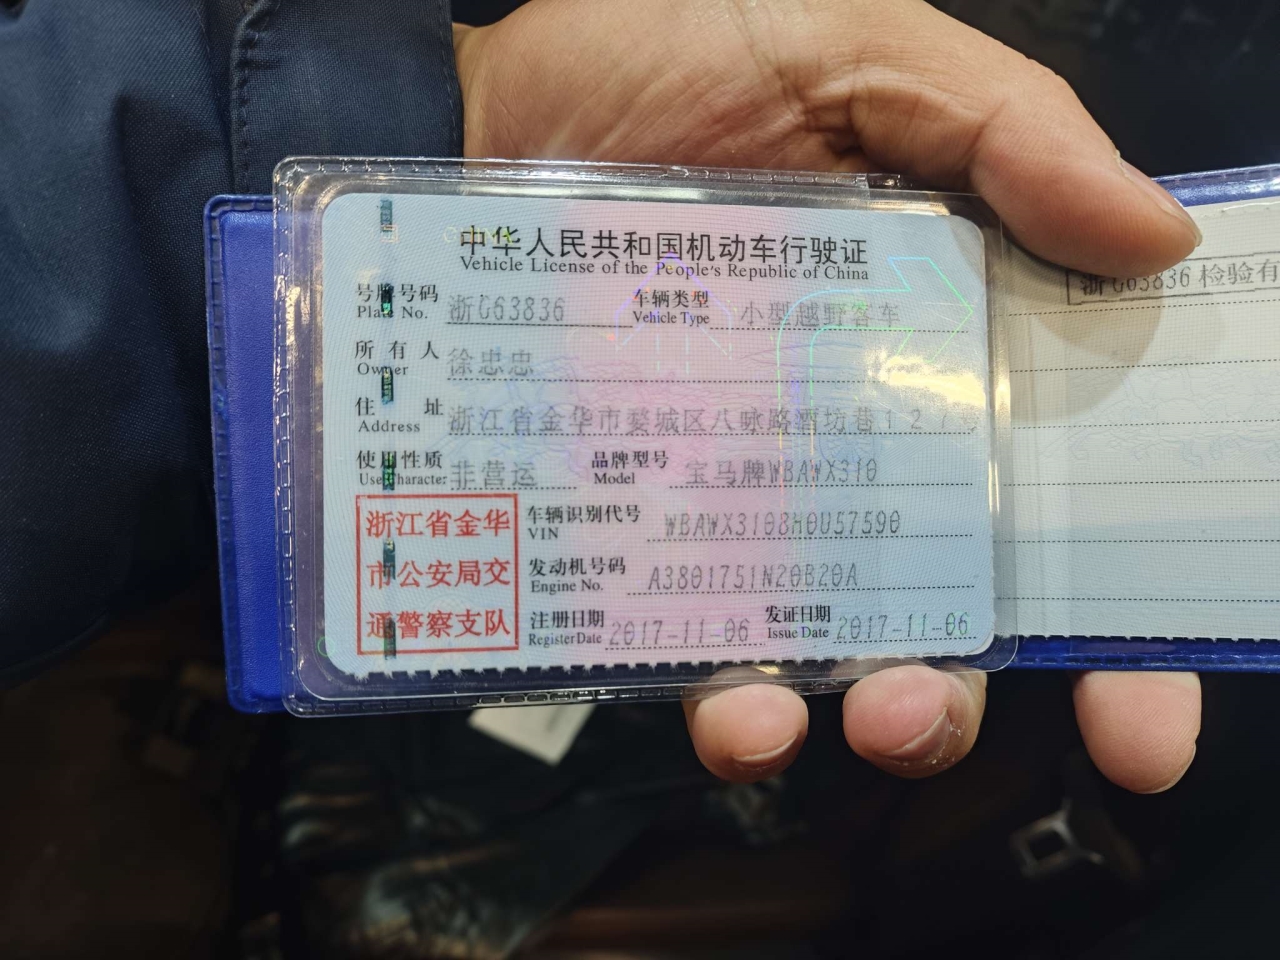 中华人民共和国机动车行驶证
Vehicle License of the People's Republic of China
号牌号码 浙G63836 车辆类型 小型越野客车
Plate No. Vehicle Type
所有人 徐忠忠
Owner
住址 浙江省金华市婺城区八咏路酒坊巷127号
Address
使用性质 非营运 品牌型号 宝马牌WBAWX310
Use Character Model
浙江省金华
市公安局交
通警察支队
车辆识别代号 WBAWX3108H0U57590
VIN
发动机号码 A3801751N20B20A
Engine No.
注册日期 2017-11-06 发证日期 2017-11-06
Register Date Issue Date
浙G63836 检验有